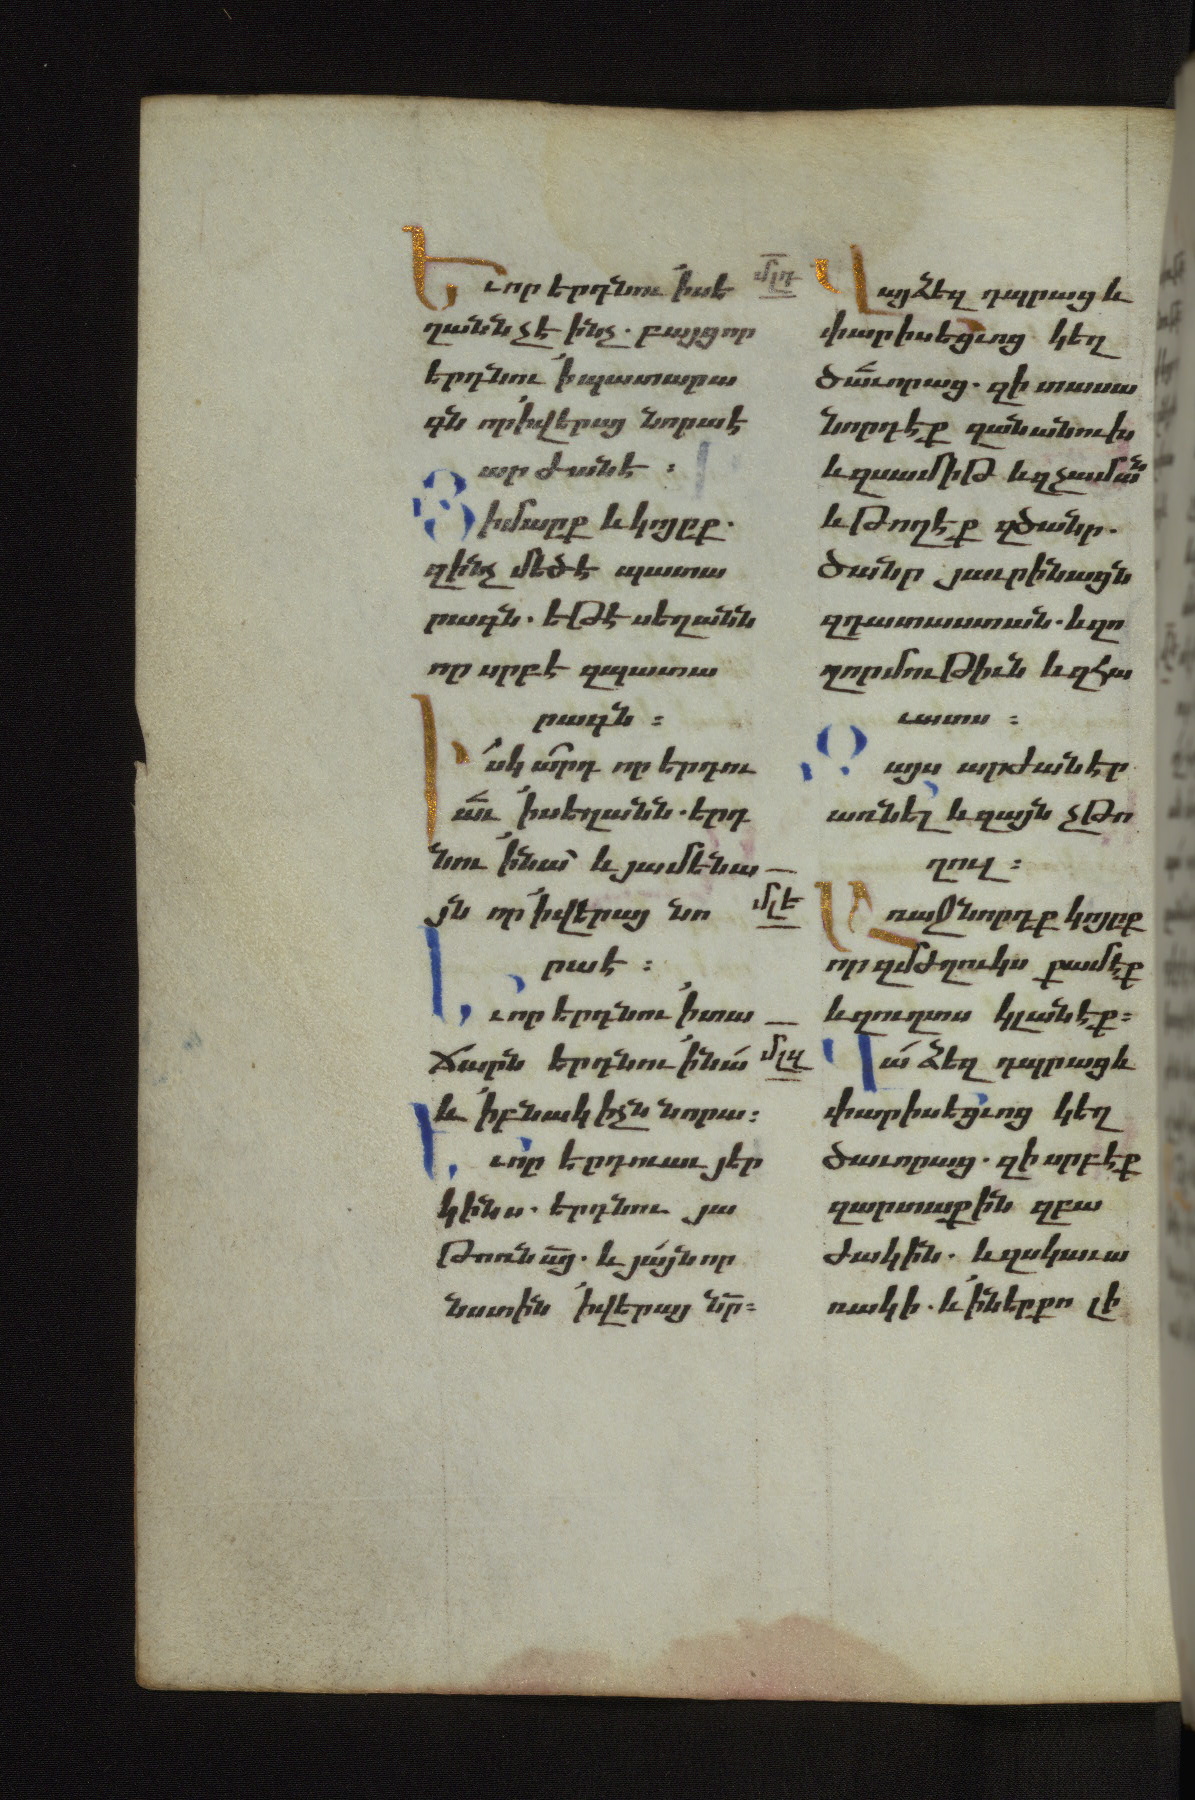 Եւոր երդնու ՛ի սե
ղանն չէ ինչ. բայց որ
երդնու ՛ի պատարա
գն որ ՛ի վերայ նորա է
արժանէ :
Յիմարք և կոյրք.
զինչ մեծ է պատա
րագն. եթէ սեղանն
որ սրբէ զպատա
րագն :
Իսկ ա՟րդ որ երդու
ա՟ւ ՛ի սեղանն. երդ
նու ՛ի նա՛ և յամենա
յն որ ՛ի վերայ նո
րա է :
Եւոր երդնու ՛ի տա
ճարն երդնու ՛ի նա՛
և ՛ի բնակիչն նորա :
Եւոր երդուաւ յեր
կինս. երդնու յա
թոռն ա՟յ. և յայն որ
նստին ՛ի վերայ նր՟ :
մլդ
Վայ ձեզ դպրաց և
փարիսեցւոց կեղ
ծա՟ւորաց. զի տասա
նորդէք զանանուխ
և զսամիթ և զչամա՟ն
և թողէք զծանր.
ծանր յաւրինացն
զդատաստան. և զո
ղորմութիւն և զհա
ւատս :
Զայս արժան էր
առնել և զայն չթո
ղուլ :
մլե
Առաջնորդք կոյրք
որ զմժղուկս քամէք
և զուղտս կլանէք :
մլզ
Վա՛ ձեզ դպրաց և
փարիսեցւոց կեղ
ծաւորաց. զի սրբէք
զարտաքին զբա
ժակին. և զսկաւա
ռակի. և ՛ի ներքո լի